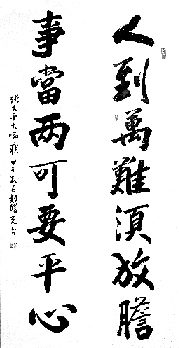 人到萬難須放膽
事當两可要平心